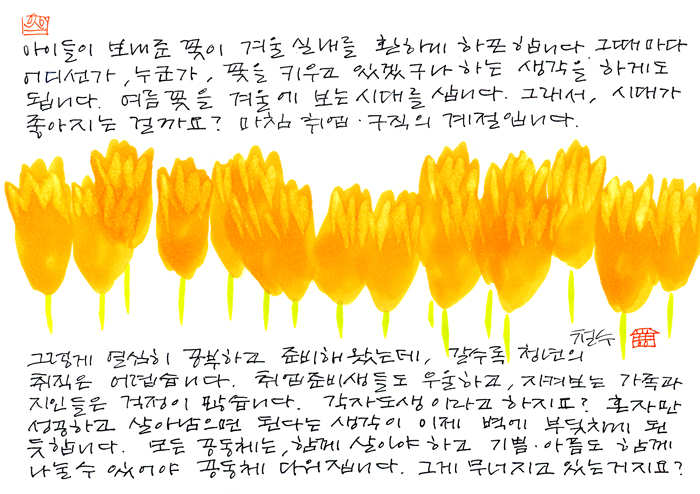 아이들이 보내준 꽃이 겨울 실내를 환하게 하고 합니다 그때마다
어디선가, 누군가, 꽃을 키우고 있겠구나 하는 생각을 하게도
됩니다. 여름꽃을 겨울에 보는 시대를 삽니다. 그래서, 시대가
좋아지는 걸까요? 마침 취업·구직의 계절입니다.
철수
그렇게 열심히 공부하고 준비해왔는데, 갈수록 청년의
취직은 어렵습니다. 취업준비생들도 우울하고, 지켜보는 가족과
지인들은 걱정이 많습니다. 각자도생이라고 하지요? 혼자만
성공하고 살아남으면 된다는 생각이 이제 벽에 부딪치게 된
듯합니다. 모든 공동체는, 함께 살아야 하고 기쁨·아픔도 함께
나눌 수 있어야 공동체 다워집니다. 그게 무너지고 있는거지요?